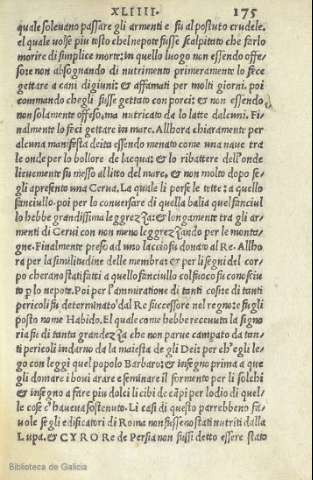 XLIIII. 175
quale soleuano passare gli armenti e fu al postuto crudele.
el quale uolse piu tosto chel nepote fusse scalpitato che farlo
morire di simplice morte: in quello luogo non essendo offe/
so ne non absognando di nutrimento primeramente lo fece
gettare a cani digiuni: & affamati per molti giorni. poi
commando chegli fusse gettato con porci: & non essendo
non solamente offeso, ma nutricato da lo latte dalcuni. Fi
nalmente lo feci gettare in mare. Allhora chiaramente per
alcuna manifesta deita essendo menato come una naue tra
le onde per lo bollore de lacqua: & lo ribattere dell'onde
lieuemente fu messo al litto del mare, & non molto dapo se
gli apresento una Cerua. La quale li porse le tette: a quello
fanciullo. poi per lo conuersare di quella balia quel fanciul
lo hebbe grandissima leggrezza: & longamente tra gli ar
menti di Cerui con non meno leggrezza ando per le monta/
gne. Finalmente preso ad uno laccio fu donato al Re. Allho
ra per la similitudine delle membra: & per li segni del cor/
po che erano stati fatti a quello fanciullo col fuoco fu conosciu
to p lo nepote. Poi per l'ammiratione di tanti casi: & di tanti
pericoli fu determinato dal Re successore nel regno: & fugli
posto nome Habido. El quale come hebbe receuuta la signo
ria fu di tanta grandezza che non parue campato da tan/
ti pericoli indarno da la maiesta de gli Dei: per ch'egli le/
go con leggi quel popolo Barbaro: & insegno prima a que
gli domare i boui arare e seminare il formento per li solchi
& insegno a fare piu dolci li cibi de cāpi per lodio di quel/
le cose c'haueua sostenuto. Li casi di questo parrebbeno fa/
uole se gli edificatori di Roma non fusseno stati nutriti dalla
Lupa. & CYRO Re de Persia non fussi detto essere stato
Biblioteca de Galicia